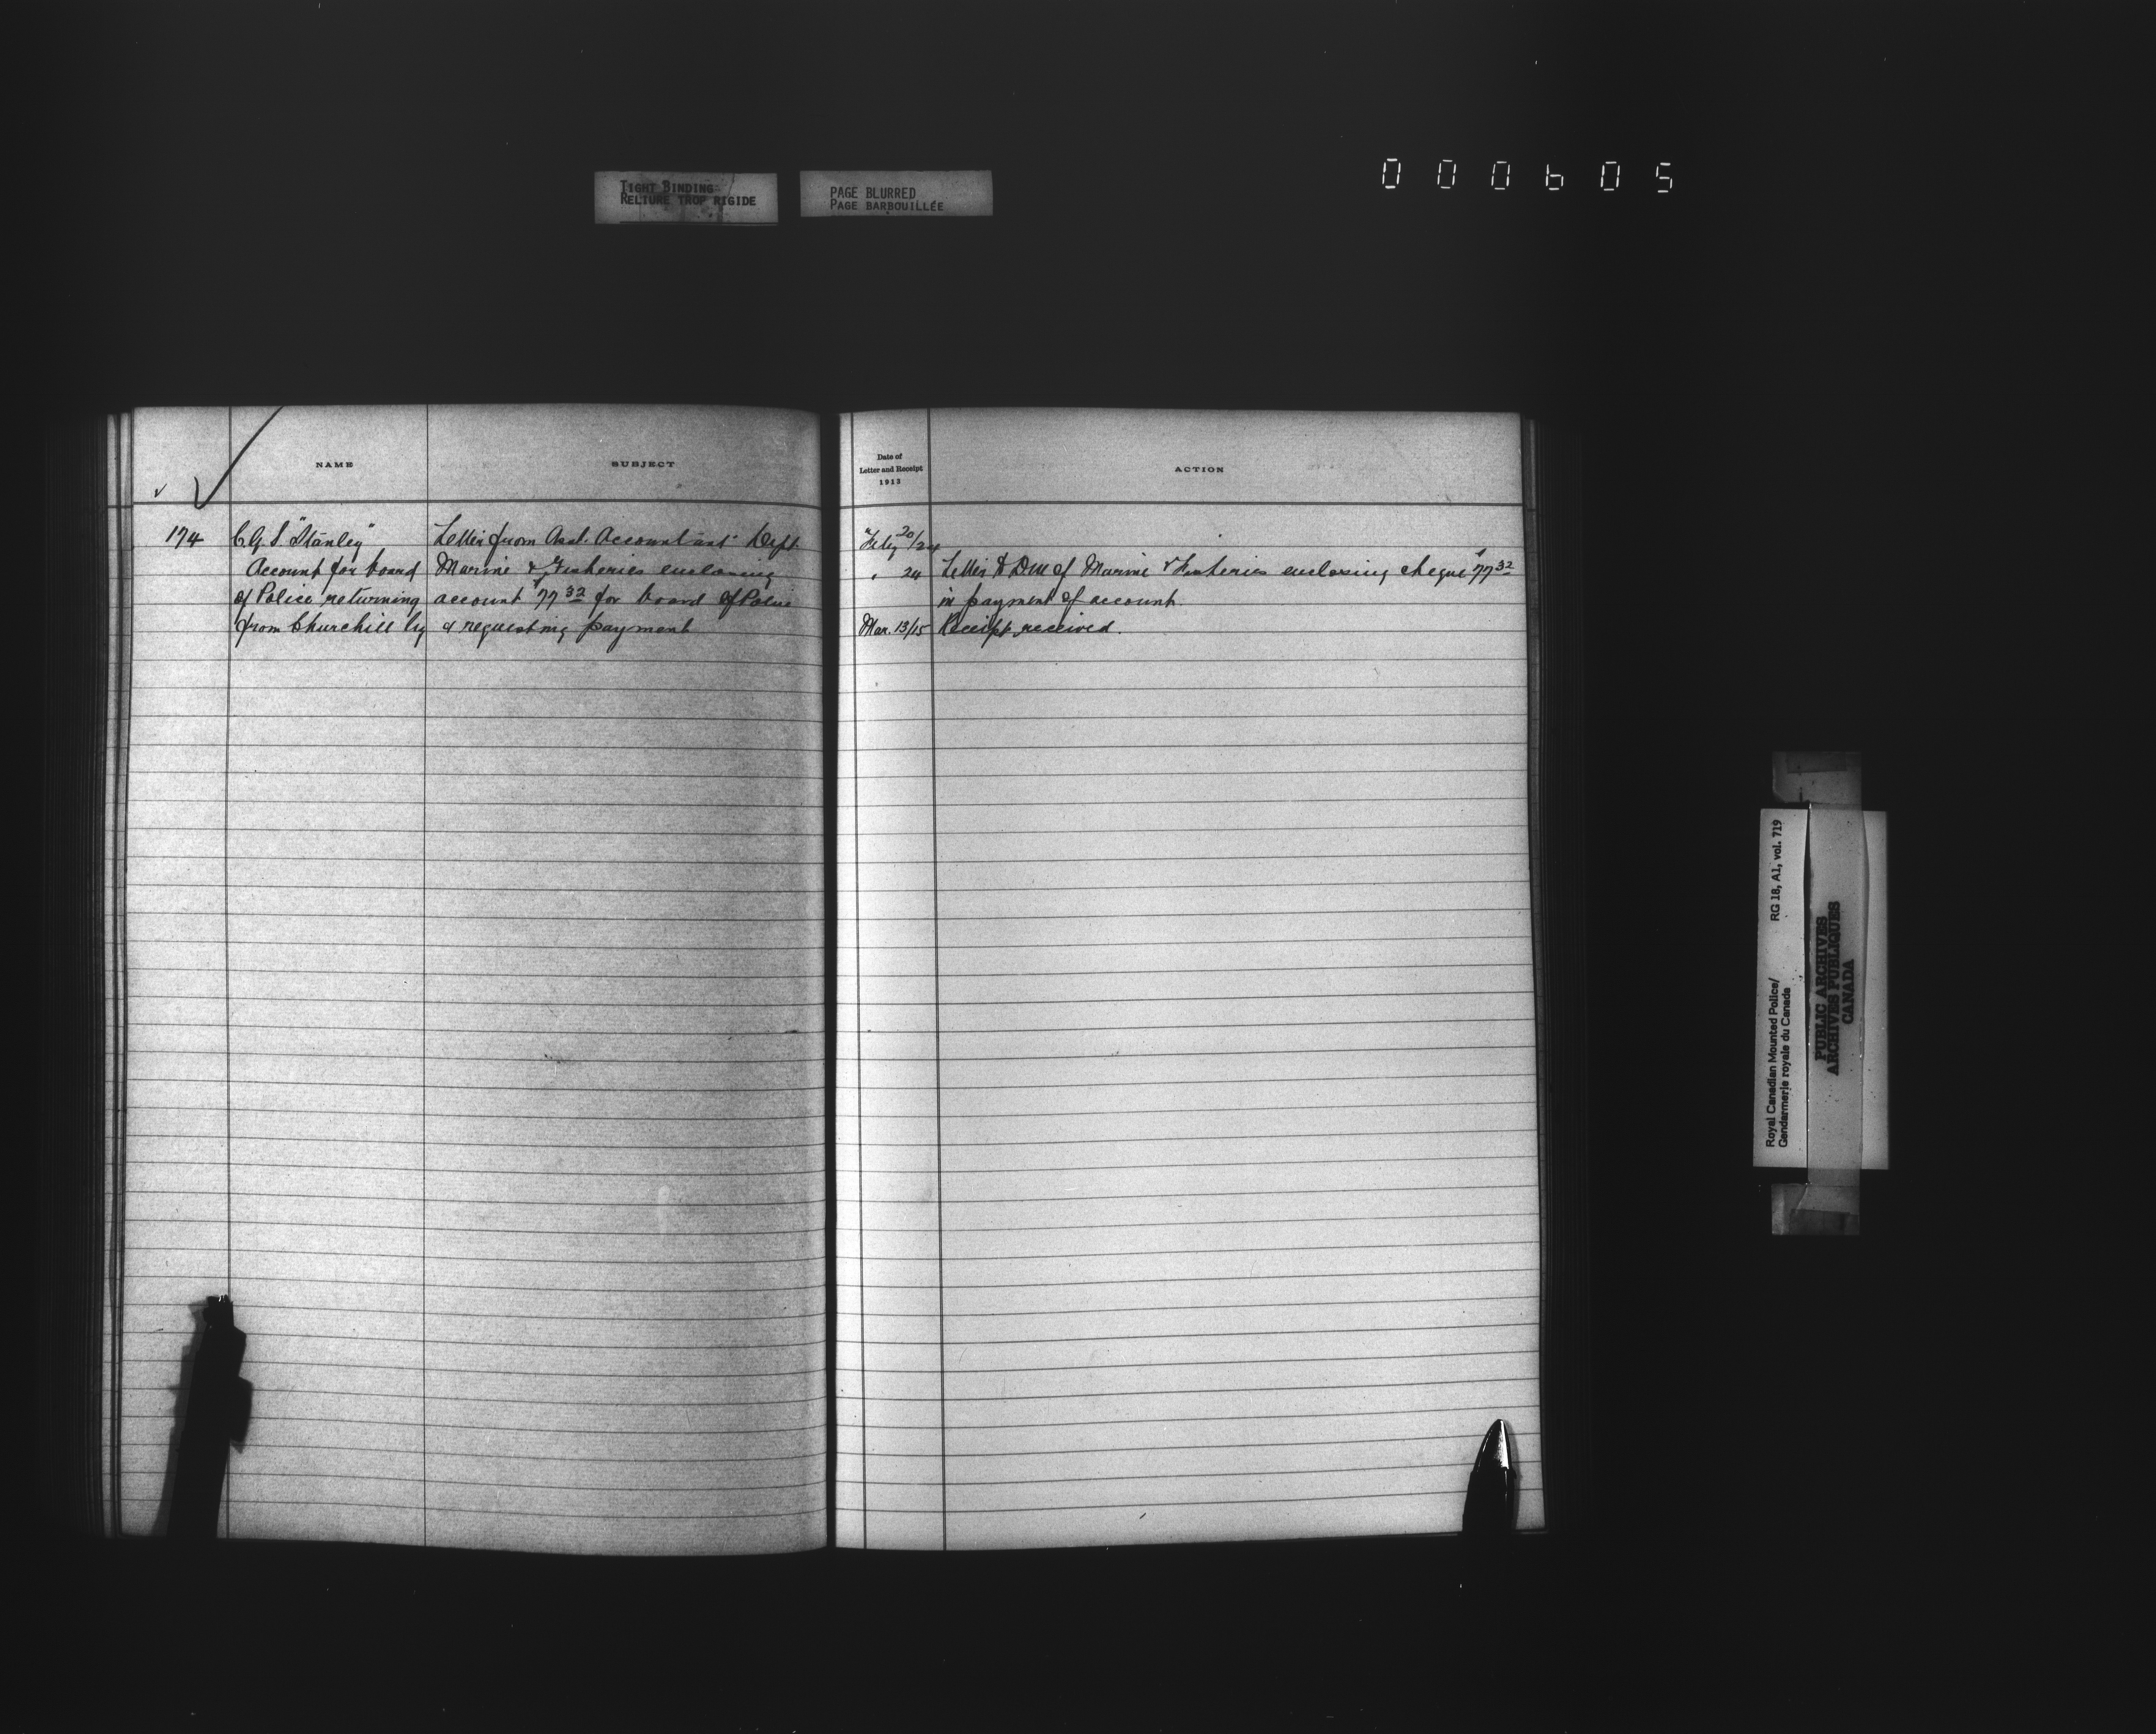 TIGHT BINDING
RELIURE TROP RIGIDE
PAGE BLURRED
PAGE BARBOUILLÉE
000605
NAME
SUBJECT
Date of
Letter and Receipt
1913
ACTION
174 C.G.S "Stanley" Letter from Asst. Accountant Dept. Feby 20/24
Account for board Marine & Fisheries enclosing " 24 Letter to DM of Marine & Fisheries enclosing cheque $77 32
of Police returning account $77 32 for board of Police in payment of account.
from Churchill by & requesting payment Mar. 13/15 Receipt received.
Royal Canadian Mounted Police/ RG 18, A1, vol. 719
Gendarmerie royale du Canada
PUBLIC ARCHIVES
ARCHIVES PUBLIQUES
CANADA